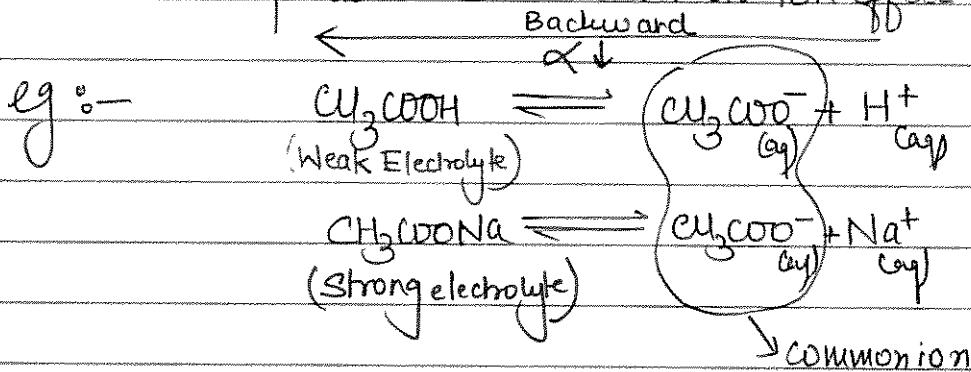 Backward
α ↓
eg :- CH₃COOH ⇌ CH₃COO⁻(aq) + H⁺(aq)
(Weak Electrolyte)
CH₃COONa ⇌ CH₃COO⁻(aq) + Na⁺(aq)
(Strong electrolyte)
common ion